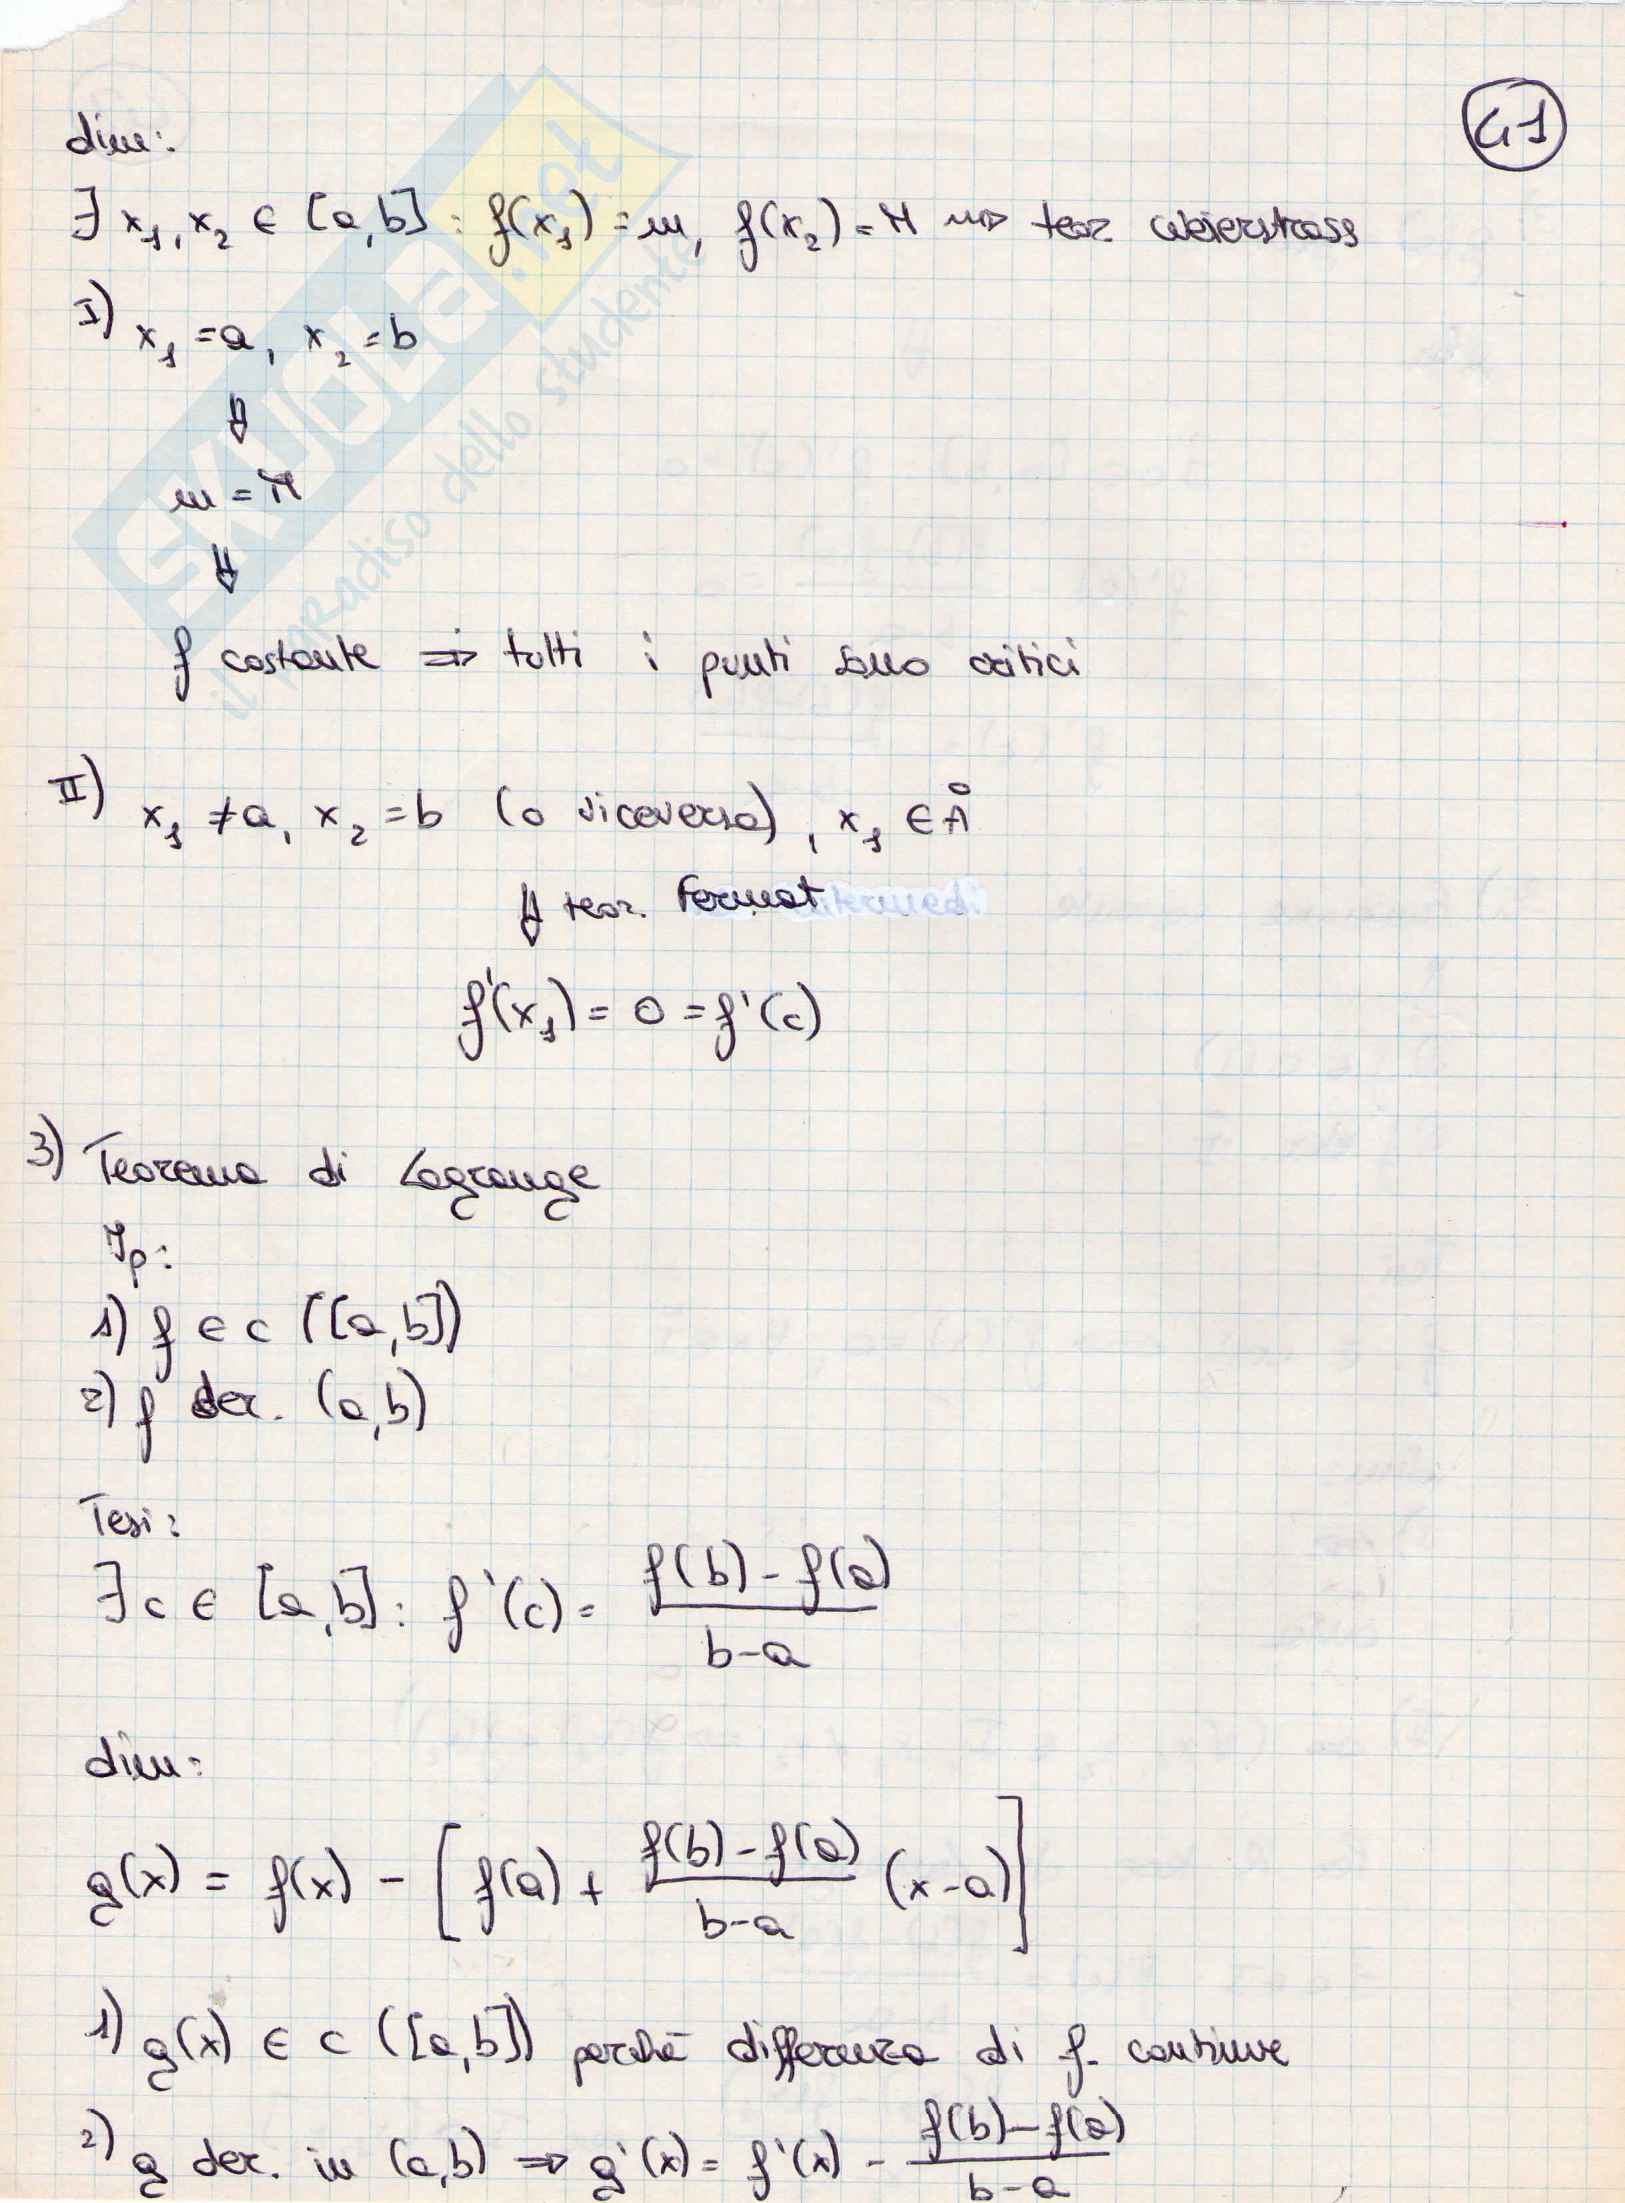 41
dim:
∃ x₁, x₂ ∈ [a,b] : f(x₁) = m, f(x₂) = M ⇝ teor weierstrass
I) x₁ = a, x₂ = b
⇓
m = M
⇓
f costante ⇒ tutti i punti sono critici
II) x₁ ≠ a, x₂ = b (o viceversa), x₁ ∈ Å
⇓ teor. Fermat
f'(x₁) = 0 = f'(c)
3) Teorema di Lagrange
Ip:
1) f ∈ c ([a,b])
2) f der. (a,b)
Tesi:
∃ c ∈ [a,b] : f'(c) = (f(b) - f(a)) / (b-a)
dim:
g(x) = f(x) - [f(a) + (f(b) - f(a)) / (b-a) (x-a)]
1) g(x) ∈ c ([a,b]) perchè differenza di f. continue
2) g der. in (a,b) ⇒ g'(x) = f'(x) - (f(b) - f(a)) / (b-a)
SKUOLA.net
il paradiso dello studente